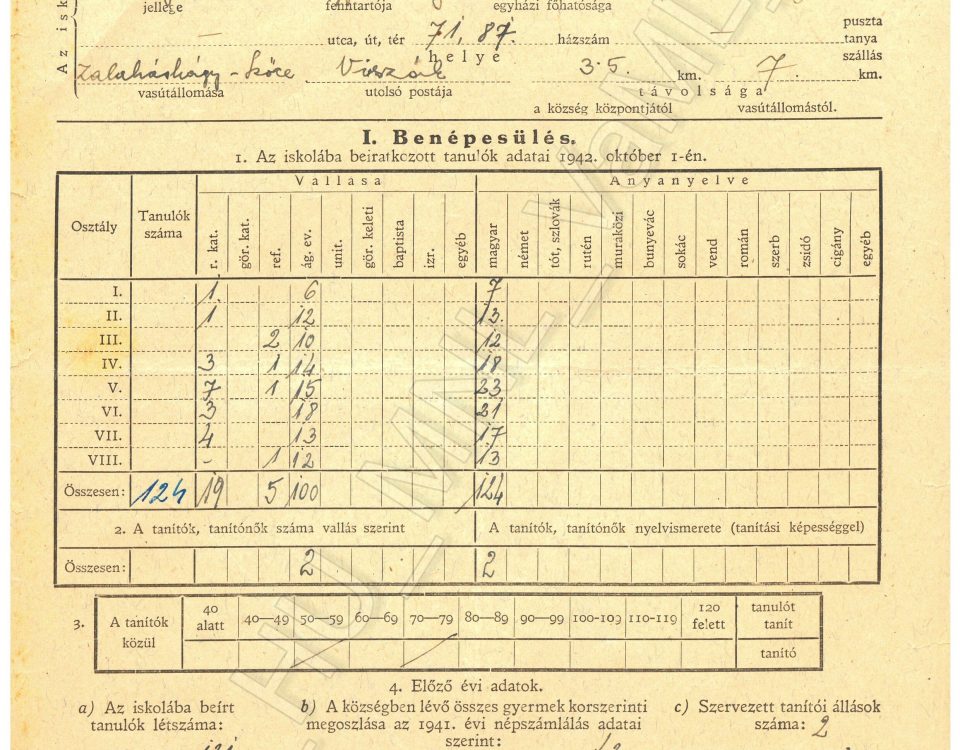 Az isk
jellege fenntartója egyházi főhatósága
— utca, út, tér 71, 87. házszám — puszta
helye tanya
szállás
Zalaháshágy - Szőce Viszák 3.5. km. 7. km.
vasútállomása utolsó postája távolsága
a község központjától vasútállomástól.
I. Benépesülés.
1. Az iskolába beiratkozott tanulók adatai 1942. október 1-én.
Osztály Tanulók száma Vallása Anyanyelve
r. kat. gör. kat. ref. ág. ev. unit. gör. keleti baptista izr. egyéb magyar német tót, szlovák rutén muraközi bunyevác sokác vend román szerb zsidó cigány egyéb
I. 1. 6 7
II. 1 12 13.
III. 2 10 12
IV. 3 1 14 18
V. 7 1 15 23
VI. 3 18 21
VII. 4 13 17
VIII. - 1 12 13
Összesen: 124 19 5 100 124
2. A tanítók, tanítónők száma vallás szerint A tanítók, tanítónők nyelvismerete (tanítási képességgel)
Összesen: 2 2
3. A tanítók közül 40 alatt 40—49 50—59 60—69 70—79 80—89 90—99 100-109 110-119 120 felett tanulót tanít
tanító
4. Előző évi adatok.
a) Az iskolába beírt b) A községben lévő összes gyermek korszerinti c) Szervezett tanítói állások
tanulók létszáma: megoszlása az 1941. évi népszámlálás adatai száma: 2
szerint:
HU_MNL_VaML